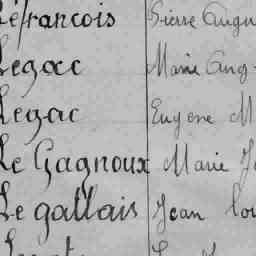 Lefrancois Pierre Augu
Legac Marie Ang
Legac Eugene M
Le Gagnoux Marie J
Le gallais Jean Lou